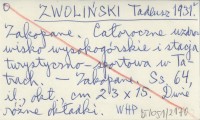 ZWOLIŃSKI Tadeusz 1931.
Zakopane. Całoroczne uzdro
wisko wysokogórskie i stacja
turystyczno-sportowa w Ta-
trach. — Zakopane. Ss 64,
il., okł., cm 23 x 15. Dwie
różne okładki.
WHP